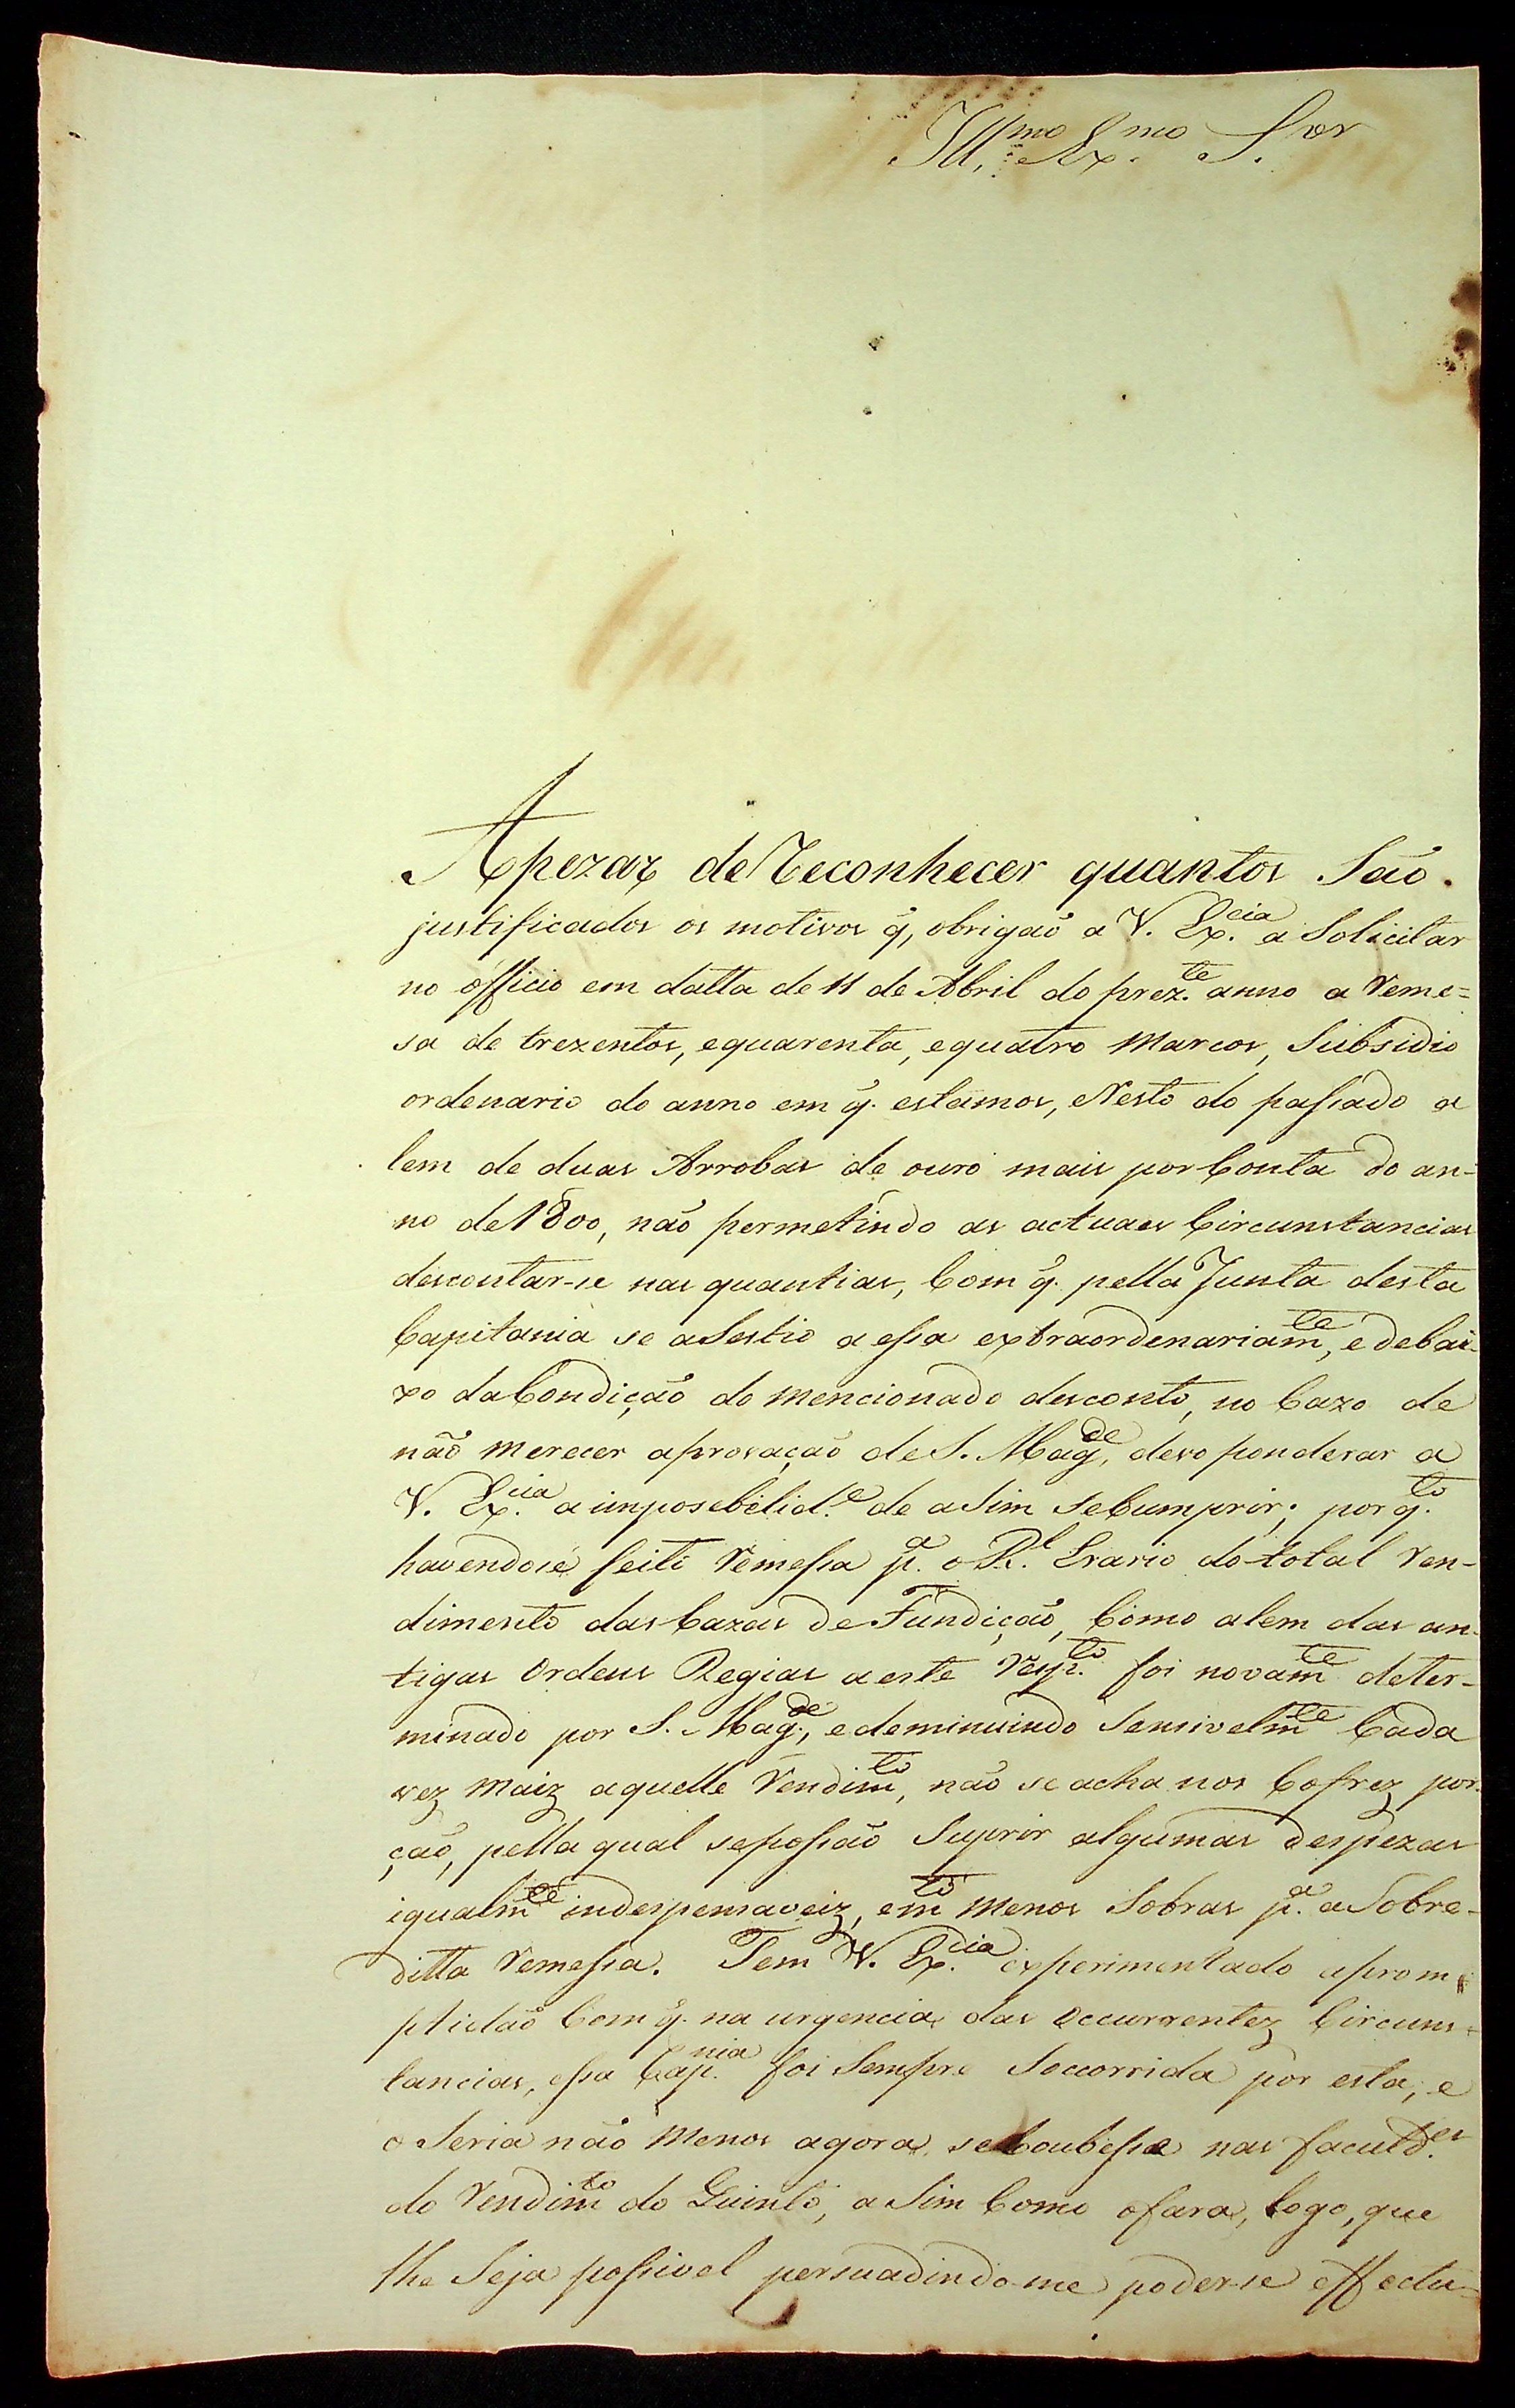 Ill.mo Ex.mo S.or
Apezar de reconhecer quantos São
justificados os motivos q̃, obrigaõ a V. Ex.cia a Solicitar
no officio em datta de 11 de Abril do prez.te anno a reme=
sa de trezentos, equarenta, equatro Marcos, Subsidio
ordenario do anno em q̃. estamos, eResto do passado a
lem de duas Arrobas de ouro mais por Conta do an-
no de 1800, naõ permetindo as actuaes Circunstancias
descontar-se nas quantias, Com q̃. pella Junta desta
Capitania se aSestio a essa extraordenariam.te, e debai-
xo daCondiçaõ do mencionado desconto, no Cazo de
naõ merecer aprovaçaõ de S. Mag.de, devo ponderar a
V. Ex.cia a imposebelid.e de aSim seCumprir; por q.to
havendose feito remessa p.a o R.l Erario do total ren-
dimento das Cazas de Fundiçaõ, Como alem das an-
tigas Ordens Regias a este resp.to foi novam.te deter-
minado por S. Mag.de, e deminuindo Sensivelm.te Cada
vez maiz aquelle rendim.to, naõ se acha nos Cofrez por-
çaõ, pella qual sepossaõ Suprir algumas despezas
igualm.te indespensaveiz, em.to menos Sobras p.a a Sobre-
ditta remessa. Tem V. Ex.cia experimentado aprom-
ptidaõ Com q̃. na urgencia das occurrentez Circuns-
tancias, essa Cap.nia foi Sempre Socorrida por esta, e
o Seria naõ menos agora, seCoubesse nas faculd.es
do rendim.to do Quinto, aSim Como ofara, logo, que
lhe Seja possivel persuadindo-me poder-se effectu-